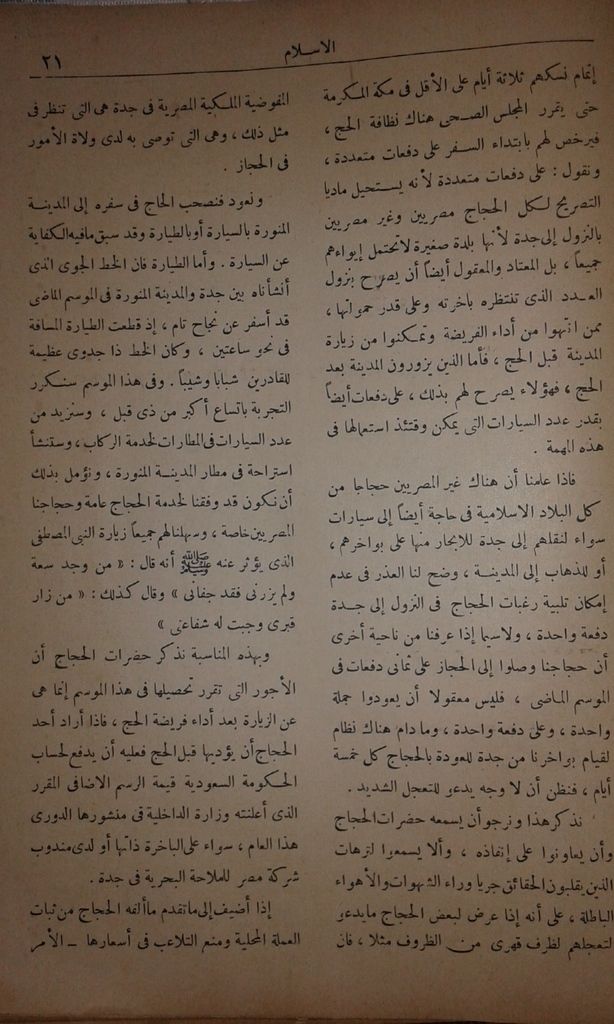 الاسلام
٢١
إتمام نسكهم ثلاثة أيام على الأقل فى مكة المكرمة
حتى يقرر المجلس الصحى هناك نظافة الحج ،
فيرخص لهم بابتداء السفر على دفعات متعددة ،
ونقول : على دفعات متعددة لأنه يستحيل ماديا
التصريح لكل الحجاج مصريين وغير مصريين
بالنزول إلى جدة لأنها بلدة صغيرة لا تحتمل إيواءهم
جميعاً ، بل المعتاد والمعقول أيضاً أن يصرح بنزول
العدد الذى تنتظره باخرته وعلى قدر حمولتها ،
ممن انتهوا من أداء الفريضة وتمكنوا من زيارة
المدينة قبل الحج ، فأما الذين يزورون المدينة بعد
الحج ، فهؤلاء يصرح لهم بذلك ، على دفعات أيضاً
بقدر عدد السيارات التى يمكن وقتئذ استعمالها فى
هذه المهمة .
فاذا علمنا أن هناك غير المصريين حجاجا من
كل البلاد الاسلامية فى حاجة أيضاً إلى سيارات
سواء لنقلهم إلى جدة للابحار منها على بواخرهم ،
أو للذهاب إلى المدينة ، وضح لنا العذر فى عدم
إمكان تلبية رغبات الحجاج فى النزول إلى جدة
دفعة واحدة ، ولاسيما إذا عرفنا من ناحية أخرى
أن حجاجنا وصلوا إلى الحجاز على ثمانى دفعات فى
الموسم الماضى ، فليس معقولا أن يعودوا جملة
واحدة ، وعلى دفعة واحدة ، وما دام هناك نظام
لقيام بواخرنا من جدة للعودة بالحجاج كل خمسة
أيام ، فنظن أن لا وجه يدعو للتعجل الشديد .
نذكر هذا ونرجو أن يسمعه حضرات الحجاج
وأن يعاونوا على إنفاذه ، وألا يسمعوا لترهات
الذين يقلبون الحقائق جريا وراء الشهوات والأهواء
الباطلة ، على أنه إذا عرض لبعض الحجاج مايدعو
لتعجلهم لظرف قهرى من الظروف مثلا ، فان
المفوضية الملكية المصرية فى جدة هى التى تنظر فى
مثل ذلك ، وهى التى توصى به لدى ولاة الأمور
فى الحجاز .
ونعود فنصحب الحاج فى سفره إلى المدينة
المنورة بالسيارة أو بالطيارة وقد سبق مافيه الكفاية
عن السيارة . وأما الطيارة فان الخط الجوى الذى
أنشأناه بين جدة والمدينة المنورة فى الموسم الماضى
قد أسفر عن نجاح تام ، إذ قطعت الطيارة المسافة
فى نحو ساعتين ، وكان الخط ذا جدوى عظيمة
للقادرين شبابا وشيباً . وفى هذا الموسم سنكرر
التجربة باتساع أكبر من ذى قبل ، وسنزيد من
عدد السيارات فى المطارات لخدمة الركاب ، وستنشأ
استراحة فى مطار المدينة المنورة ، ونؤمل بذلك
أن نكون قد وفقنا لخدمة الحجاج عامة وحجاجنا
المصريين خاصة ، وسهلنا لهم جميعاً زيارة النبى المصطفى
الذى يؤثر عنه ﷺ أنه قال : « من وجد سعة
ولم يزرنى فقد جفانى » وقال كذلك : « من زار
قبرى وجبت له شفاعتى »
وبهذه المناسبة نذكر حضرات الحجاج أن
الأجور التى تقرر تحصيلها فى هذا الموسم إنما هى
عن الزيارة بعد أداء فريضة الحج ، فاذا أراد أحد
الحجاج أن يؤديها قبل الحج فعليه أن يدفع لحساب
الحكومة السعودية قيمة الرسم الاضافى المقرر
الذى أعلنته وزارة الداخلية فى منشورها الدورى
هذا العام ، سواء على الباخرة ذاتها أو لدى مندوب
شركة مصر للملاحة البحرية فى جدة .
إذا أضيف إلى ما تقدم ما ألفه الحجاج من ثبات
العملة المحلية ومنع التلاعب فى أسعارها ــ الأمر